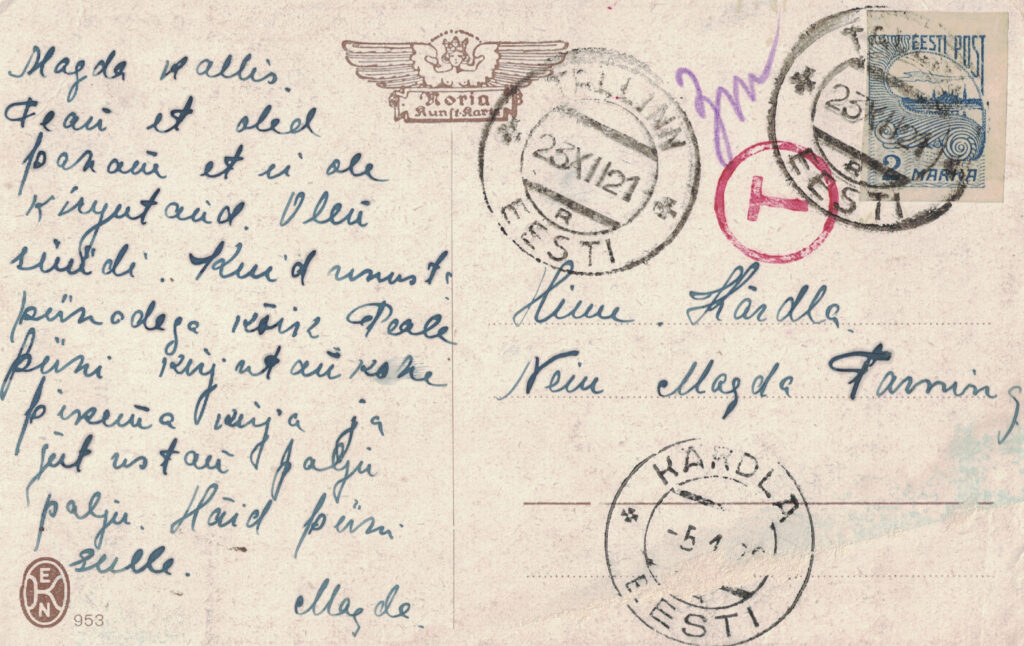 Magda kallis.
Tean et oled
pahane et ei ole
kirjutand. Olen
süüdi.. Kuid usust.
pühadega kõik Peale
pühi kirjutan kohe
pikema kirja ja
jutustan palju
palju. Häid pühi
sulle.
Magda.
EKN
953
Noria
Kunst-Karte
TALLINN
23XII21
B
EESTI
T
EESTI POST
2 MARKA
23XII21
B
EESTI
Hiiu. Kärdla.
Neiu Magda
KÄRDLA
-5.1
EESTI